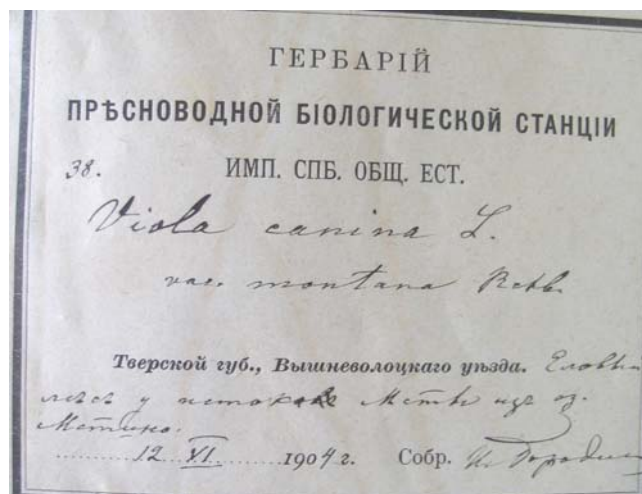 ГЕРБАРІЙ
ПРѢСНОВОДНОЙ БІОЛОГИЧЕСКОЙ СТАНЦІИ
38. ИМП. СПБ. ОБЩ. ЕСТ.
Viola canina L.
var. montana Rchb.
Тверской губ., Вышневолоцкаго уѣзда. Еловый
лѣсъ у истоковъ Мсты изъ оз.
Мстино.
12 XI 1904 г. Собр. И. Бородин